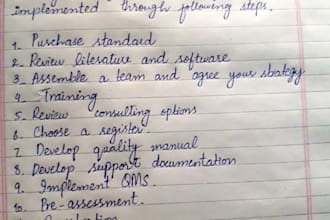 implemented through following steps.
1. Purchase standard
2. Review literature and software
3. Assemble a team and agree your strategy
4. Training
5. Review consulting options
6. Choose a register.
7. Develop quality manual
8. Develop support documentation
9. Implement QMS.
10. Pre-assessment.